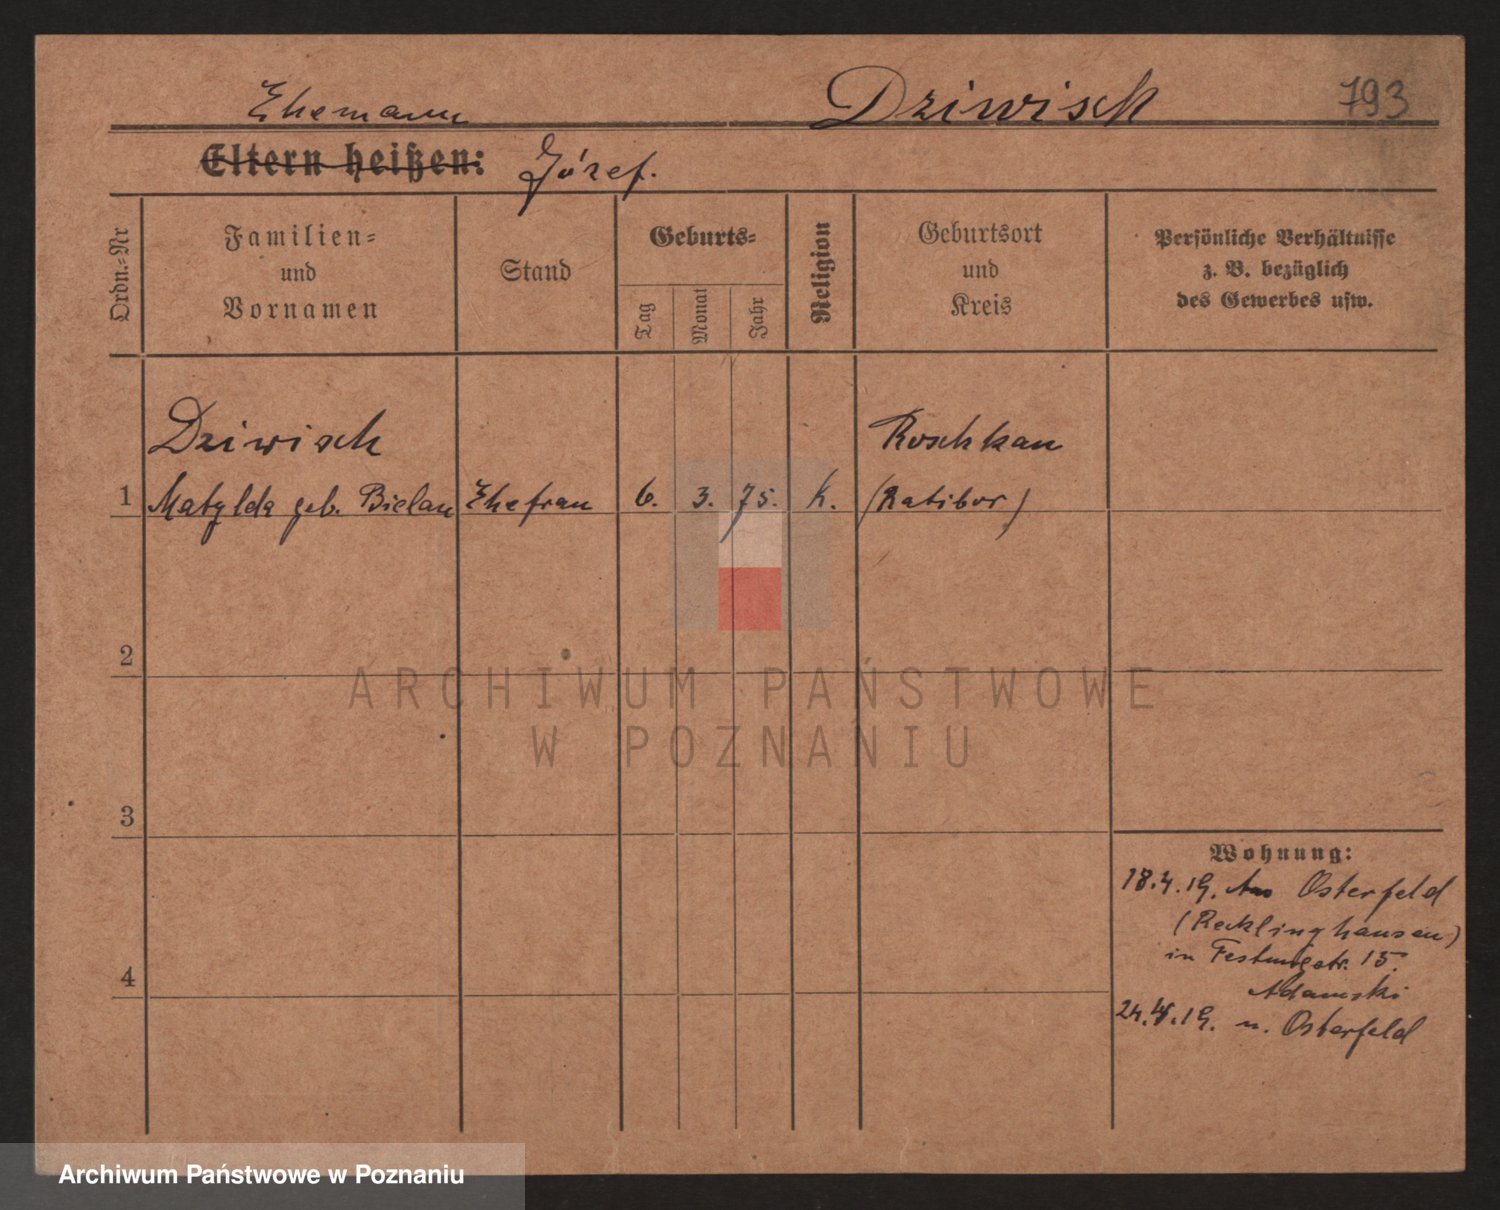 Ehemann Dziwisch 793
Eltern heißen: Józef.
Ordn.-Nr
Familien-
und
Vornamen
Stand
Geburts-
Tag
Monat
Jahr
Religion
Geburtsort
und
Kreis
Persönliche Verhältnisse
z. B. bezüglich
des Gewerbes usw.
Dziwisch Roschkau
1 Matylda geb. Bielau Ehefrau 6. 3. 75. k. (Ratibor)
2
3
4
Wohnung:
18.4.19. Osterfeld
(Recklinghausen)
in Festungstr. 15.
Adamski
24.4.19. n. Osterfeld
ARCHIWUM PAŃSTWOWE
W POZNANIU
Archiwum Państwowe w Poznaniu